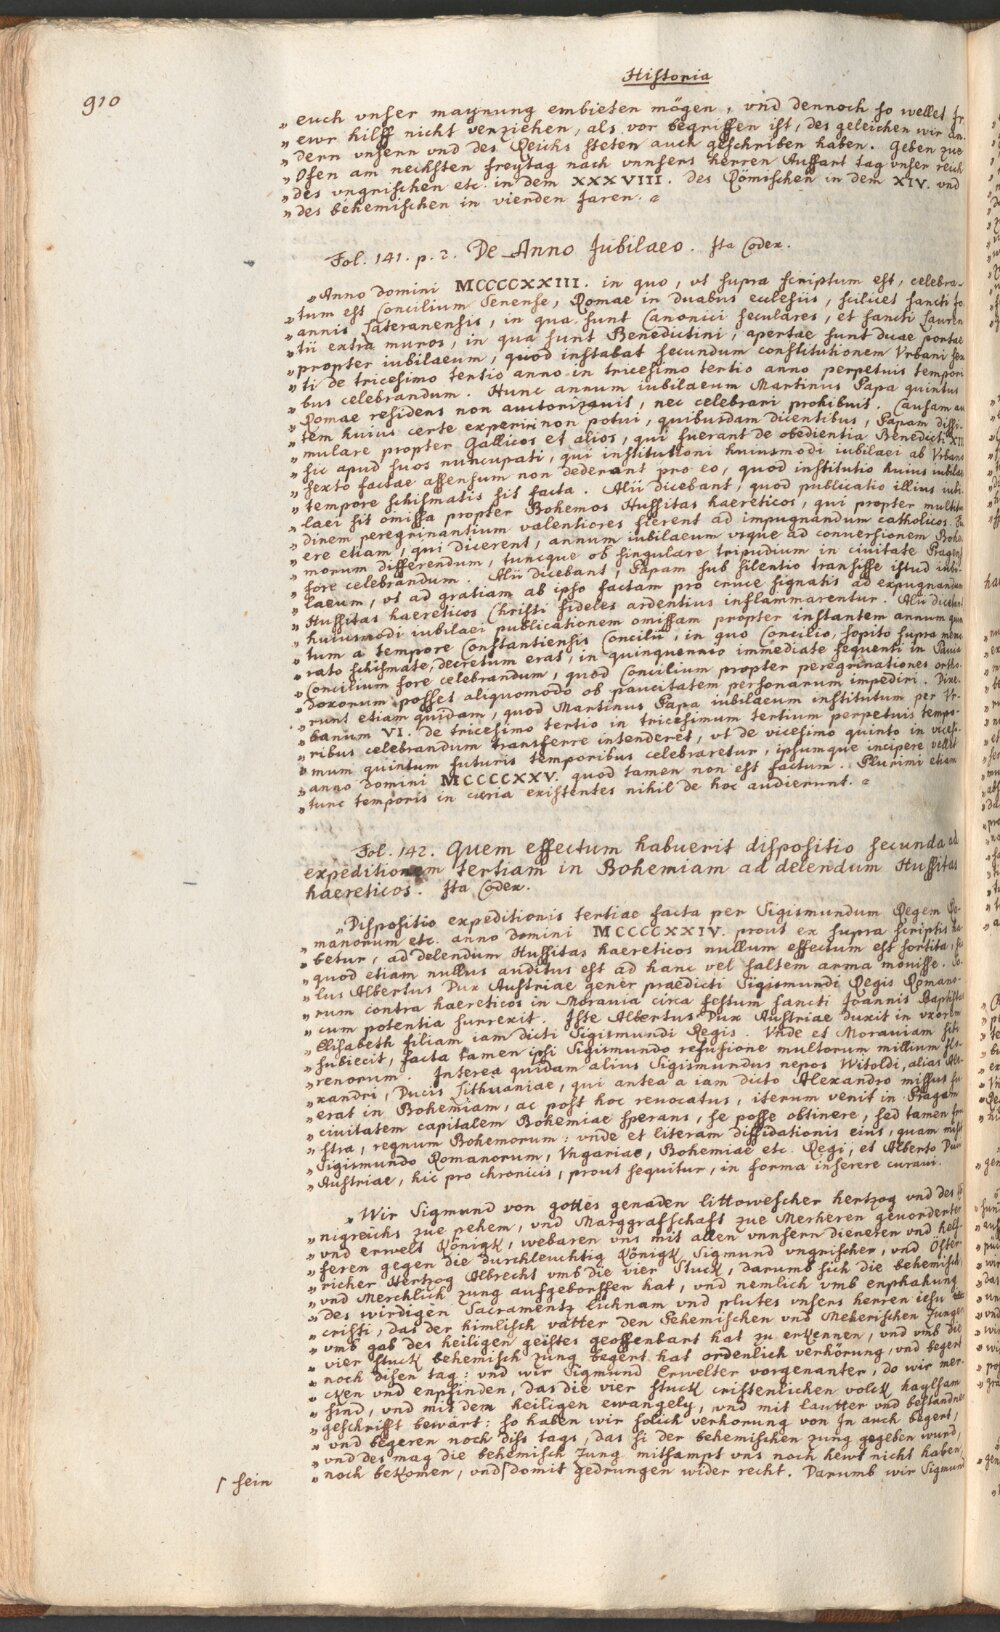 Historia
910
„ euch vnser maynung embieten mögen, vnd dennoch so wellet Jr
„ ewr hilff nicht verziehen, als vor begriffen ist, des geleichen wir an
„ dern vnsern vnd des Reichs steten auch geschriben haben. Geben zue
„ Ofen am nechsten freytag nach vnnsers herren Auffart tag vnser reich
„ des vngrischen etc. in dem XXXVIII. des Römischen in dem XIV. vnd
„ des behemischen in vierden Jaren.
Fol. 141. p. 2. De Anno Jubilaeo. Jta Codex.
„ Anno domini MCCCCXXIII. in quo, vt supra scriptum est, celebra-
„ tum est Concilium Senense, Romae in duabus ecclesiis, scilicet sancti Jo
„ annis Lateranensis, in qua sunt Canonici seculares, et sancti Lauren
„ tii extra muros, in qua sunt Benedictini, apertae sunt duae portae
„ propter iubilaeum, quod instabat secundum constitutionem Vrbani sex
„ ti de tricesimo tertio anno in tricesimo tertio anno perpetuis tempori
„ bus celebrandum. Hunc annum iubilaeum Martinus Papa quintus
„ Romae residens non auctorizauit, nec celebrari prohibuit. Causam au
„ tem huius certe experiri non potui, quibusdam dicentibus, Papam dissi-
„ mulare propter Gallicos et alios, qui fuerant de obedientia Benedicti XII
„ sic apud suos nuncupati, qui institutioni huiusmodi iubilaei ab Vrbano
„ sexto factae assensum non dederant pro eo, quod institutio huius iubilaei
„ tempore schismatis sit facta. Alii dicebant, quod publicatio illius iubi
„ laei sit omissa propter Bohemos Hussitas haereticos, qui propter multitu
„ dinem peregrinantium valentiores fierent ad impugnandum catholicos. Fu
„ ere etiam, qui dicerent, annum iubilaeum vsque ad conuersionem Bohe
„ morum differendum, tuncque ob singulare tripudium in ciuitate Pragensi
„ fore celebrandum. Alii dicebant, Papam sub silentio transisse istud iubi
„ laeum, vt ad gratiam ab ipso factam pro cruce signatis ad expugnandum
„ Hussitas haereticos Christi fideles ardentius inflammarentur. Alii dicebant
„ huiusmodi iubilaei publicationem omissam propter instantem annum quin
„ tum a tempore Constantiensis Concilii, in quo Concilio, sopito supra memo
„ rato schismate, decretum erat, in quinquennio immediate sequenti in Papia
„ Concilium fore celebrandum, quod Concilium propter peregrinationes ortho-
„ doxorum posset aliquomodo ob paucitatem personarum impediri. Dixe-
„ runt etiam quidam, quod Martinus Papa iubilaeum institutum per Vr-
„ banum VI. de tricesimo tertio in tricesimum tertium perpetuis tempo-
„ ribus celebrandum transferre intenderet, vt de vicesimo quinto in vicesi-
„ mum quintum futuris temporibus celebraretur, ipsumque incipere vellet
„ anno domini MCCCCXXV. quod tamen non est factum. Plurimi etiam
„ tunc temporis in curia existentes nihil de hoc audierunt.
Fol. 142. Quem effectum habuerit dispositio secunda ad
expeditionem tertiam in Bohemiam ad delendum Hussitas
haereticos. Jta Codex.
„ Dispositio expeditionis tertiae facta per Sigismundum Regem Ro-
„ manorum etc. anno domini MCCCCXXIV. prout ex supra scriptis ha
„ betur, ad delendum Hussitas haereticos nullum effectum est sortita,
„ quod etiam nullus auditus est ad hanc vel saltem arma mouisse. So-
„ lus Albertus Dux Austriae gener praedicti Sigismundi Regis Romano-
„ rum contra haereticos in Morauia circa festum sancti Joannis Baptistae
„ cum potentia surrexit. Iste Albertus Dux Austriae duxit in vxorem
„ Elisabeth filiam iam dicti Sigismundi Regis. Vnde et Morauiam sibi
„ subiecit, facta tamen ipsi Sigismundo refusione multorum millium flo-
„ renorum. Interea quidam alius Sigismundus nepos Witoldi, alias Ale-
„ xandri, Ducis Lithuaniae, qui antea a iam dicto Alexandro missus fu
„ erat in Bohemiam, ac post hoc reuocatus, iterum venit in Pragam
„ ciuitatem capitalem Bohemiae sperans, se posse obtinere, sed tamen fru
„ stra, regnum Bohemorum: vnde et literam diffidationis eius, quam misit
„ Sigismundo Romanorum, Vngariae, Bohemiae etc. Regi, et Alberto Duci
„ Austriae, hic pro chronicis, prout sequitur, in forma inserere curaui.
„ Wir Sigmund von gottes genaden littowescher hertzog vnd des kü
„ nigreichs zue pehem, vnd Marggrafschafft zue Merheren geuorderter
„ vnd erwelt Königk, webaren vns mit allen vnnsern dieneren vnd helf
„ feren gegen die durchleuchtig Königk Sigmund vngrischer, vnd Öster
„ richer Hertzog Albrecht vmb die vier stuck, darumb sich die behemisch
„ vnd Merchlich zung aufgeborffen hat, vnd nemlich vmb enphahung
„ des wirdigen Sacramentz lichnam vnd plutes vnsers herren iesu
„ cristi, das der himlisch vatter den Pehemischen vnd Meherischen Zungen
„ vmb gab des heiligen geistes geoffenbart hat zu erkennen, vnd vmb die
„ vier stuck behemisch zung begert hat ordenlich verhörung, vnd begert
„ noch disen tag: vnd wir Sigmund Erwelter vorgenanter, do wir mer-
„ cken vnd enpfinden, das die vier stuck cristenlichen volck haylsam
„ sind, vnd mit dem heiligen ewangely, vnd mit lautter vnd bestandner
„ geschrifft bewärt: so haben wir solich verhorung von Jn auch begert,
„ vnd begeren noch diss tags, das si der behemischen zung gegeben wurd,
„ vnd des mag die behemisch Zung mitsampt vns noch hewt nicht haben,
„ noch bekomen, vnd⌈domit gedrungen wider recht. Darumb wir Sigmund
⌈ sein